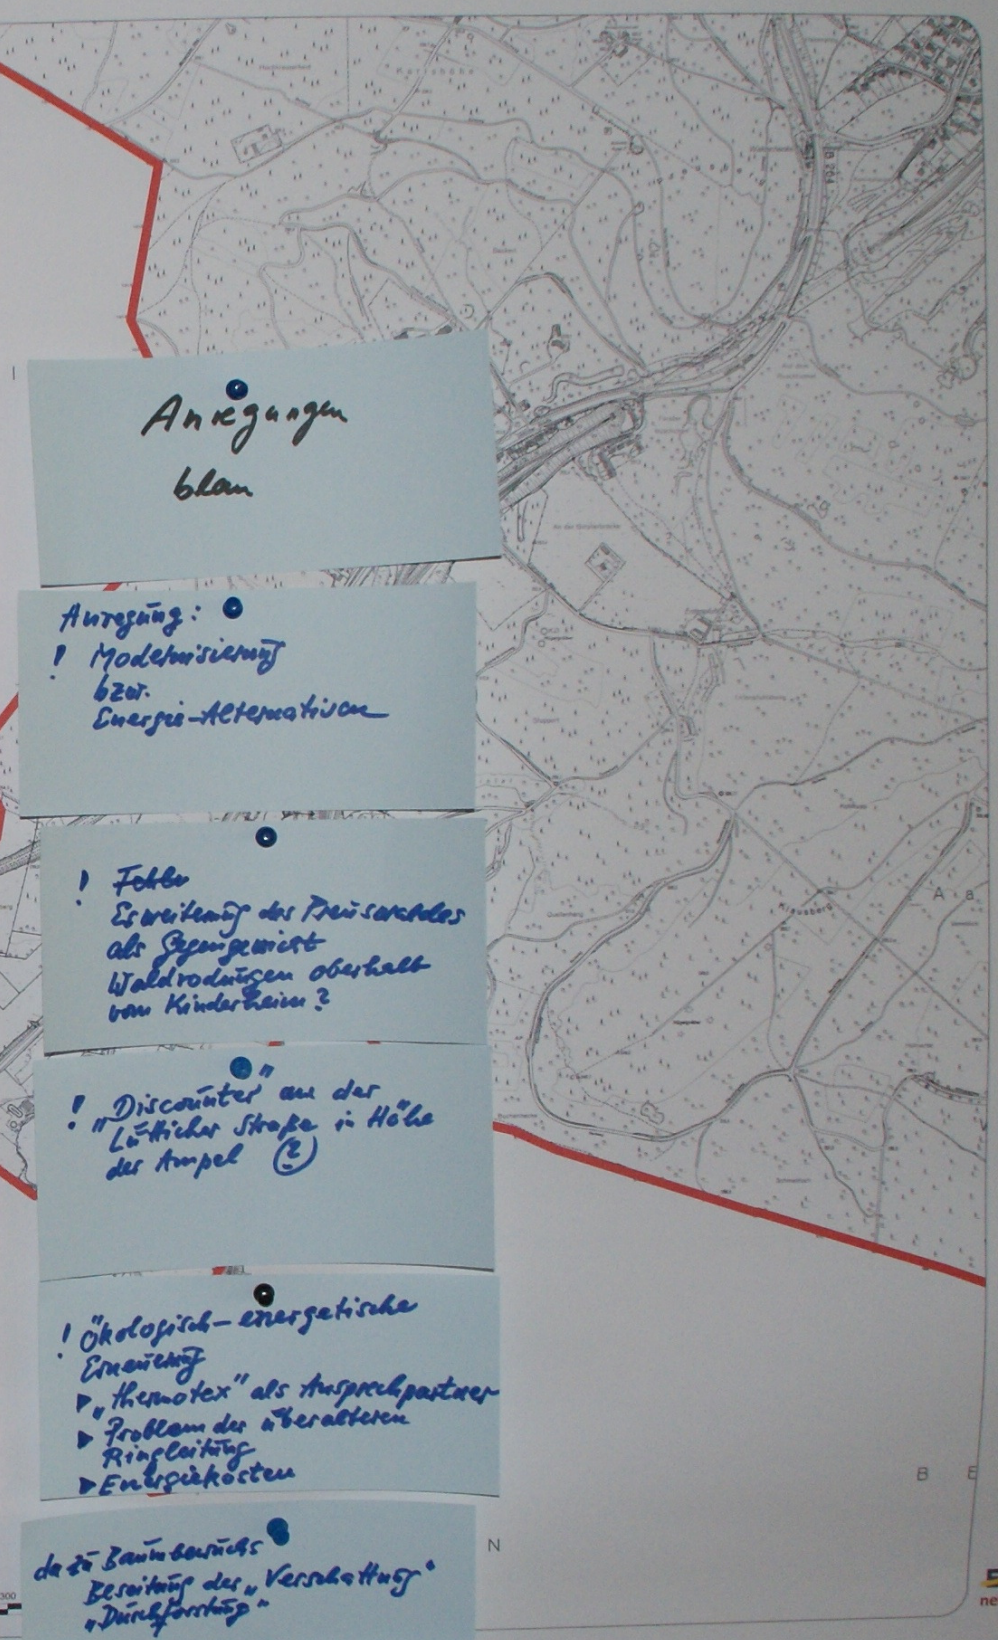 B 264
Anregungen
blau
Anregung:
! Modernisierung
bzw.
Energie-Alternativen
! Fehler
Erweiterung des Preuswaldes
als Gegengewicht
Waldrodungen oberhalb
vom Kinderheim?
! „Discounter" an der
Lütticher Straße in Höhe
der Ampel ?
! Ökologisch-energetische
Erneuerung
▶ „thermotex" als Ansprechpartner
▶ Problem der überalteren
Ringleitung
▶ Energiekosten
dazu Baumbewuchs
Beseitung der „Verschattung"
„Durchforstung"
A a
B E
N
300
ne